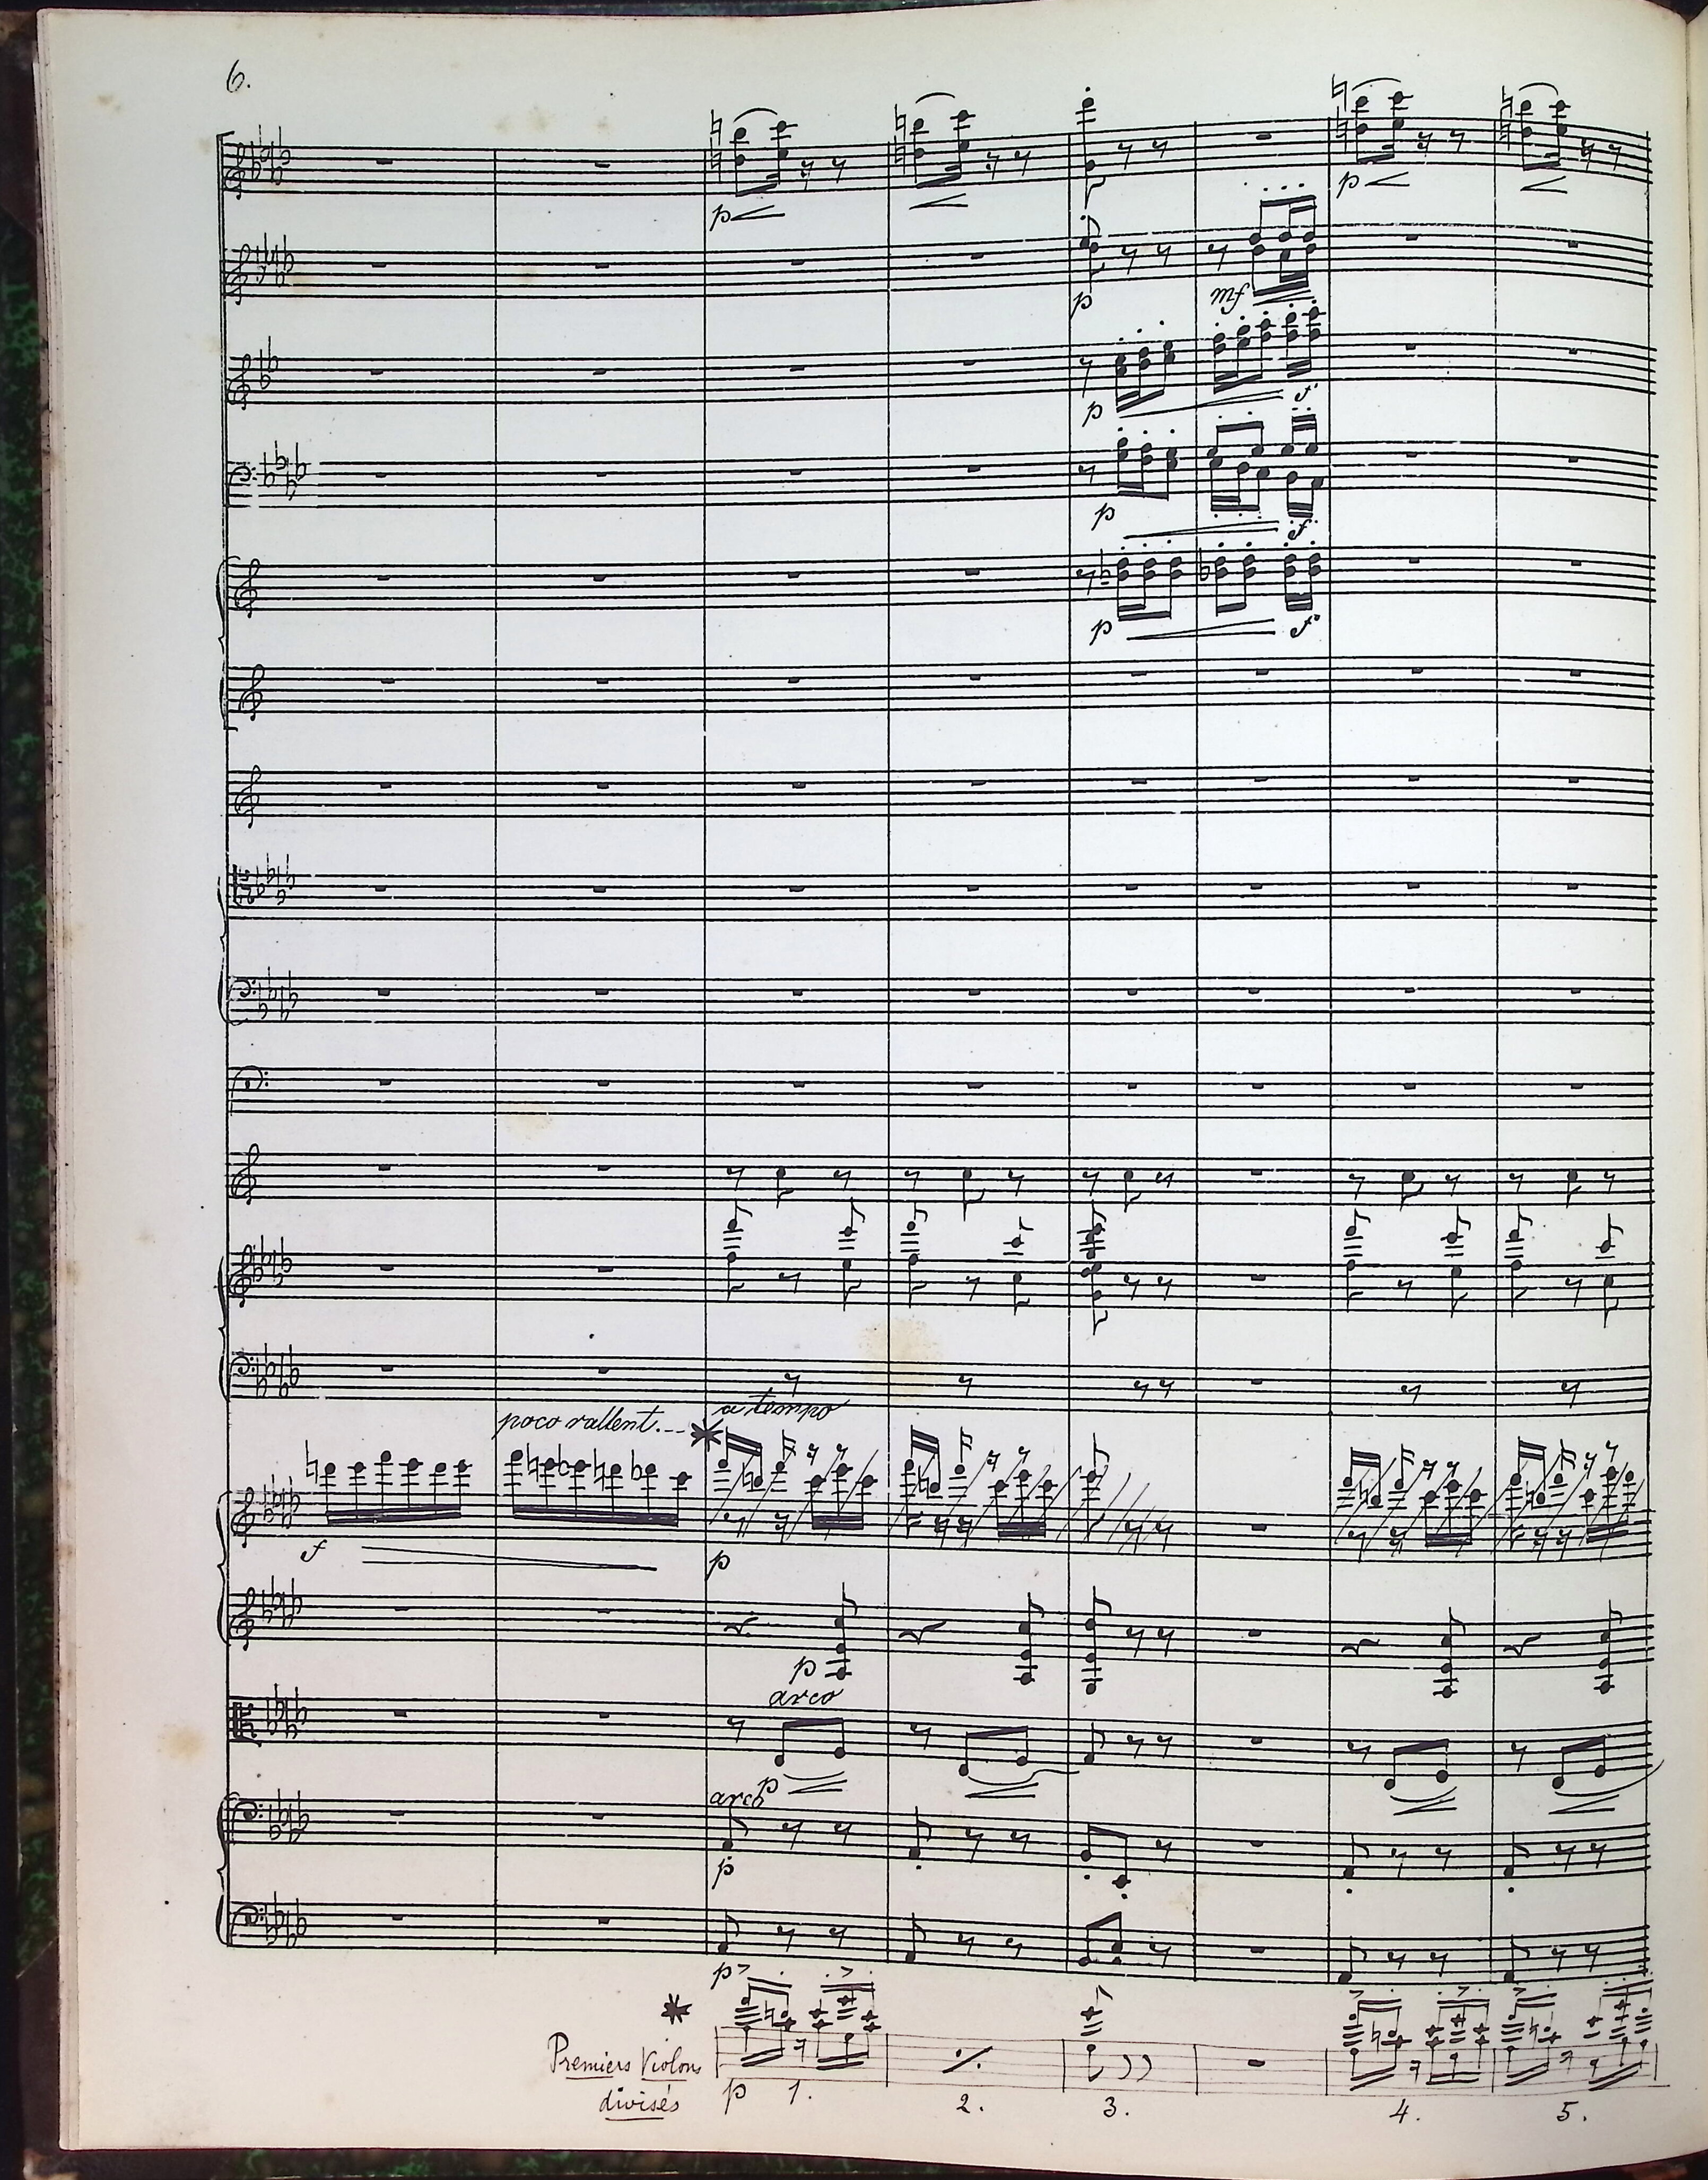 6.
p p
p mf
p f
p f
p f
poco rallent. -- * a tempo
f p
p
arco
p
arco
p
p
* Premiers Violons
divisés
p 1. 2. 3. 4. 5.